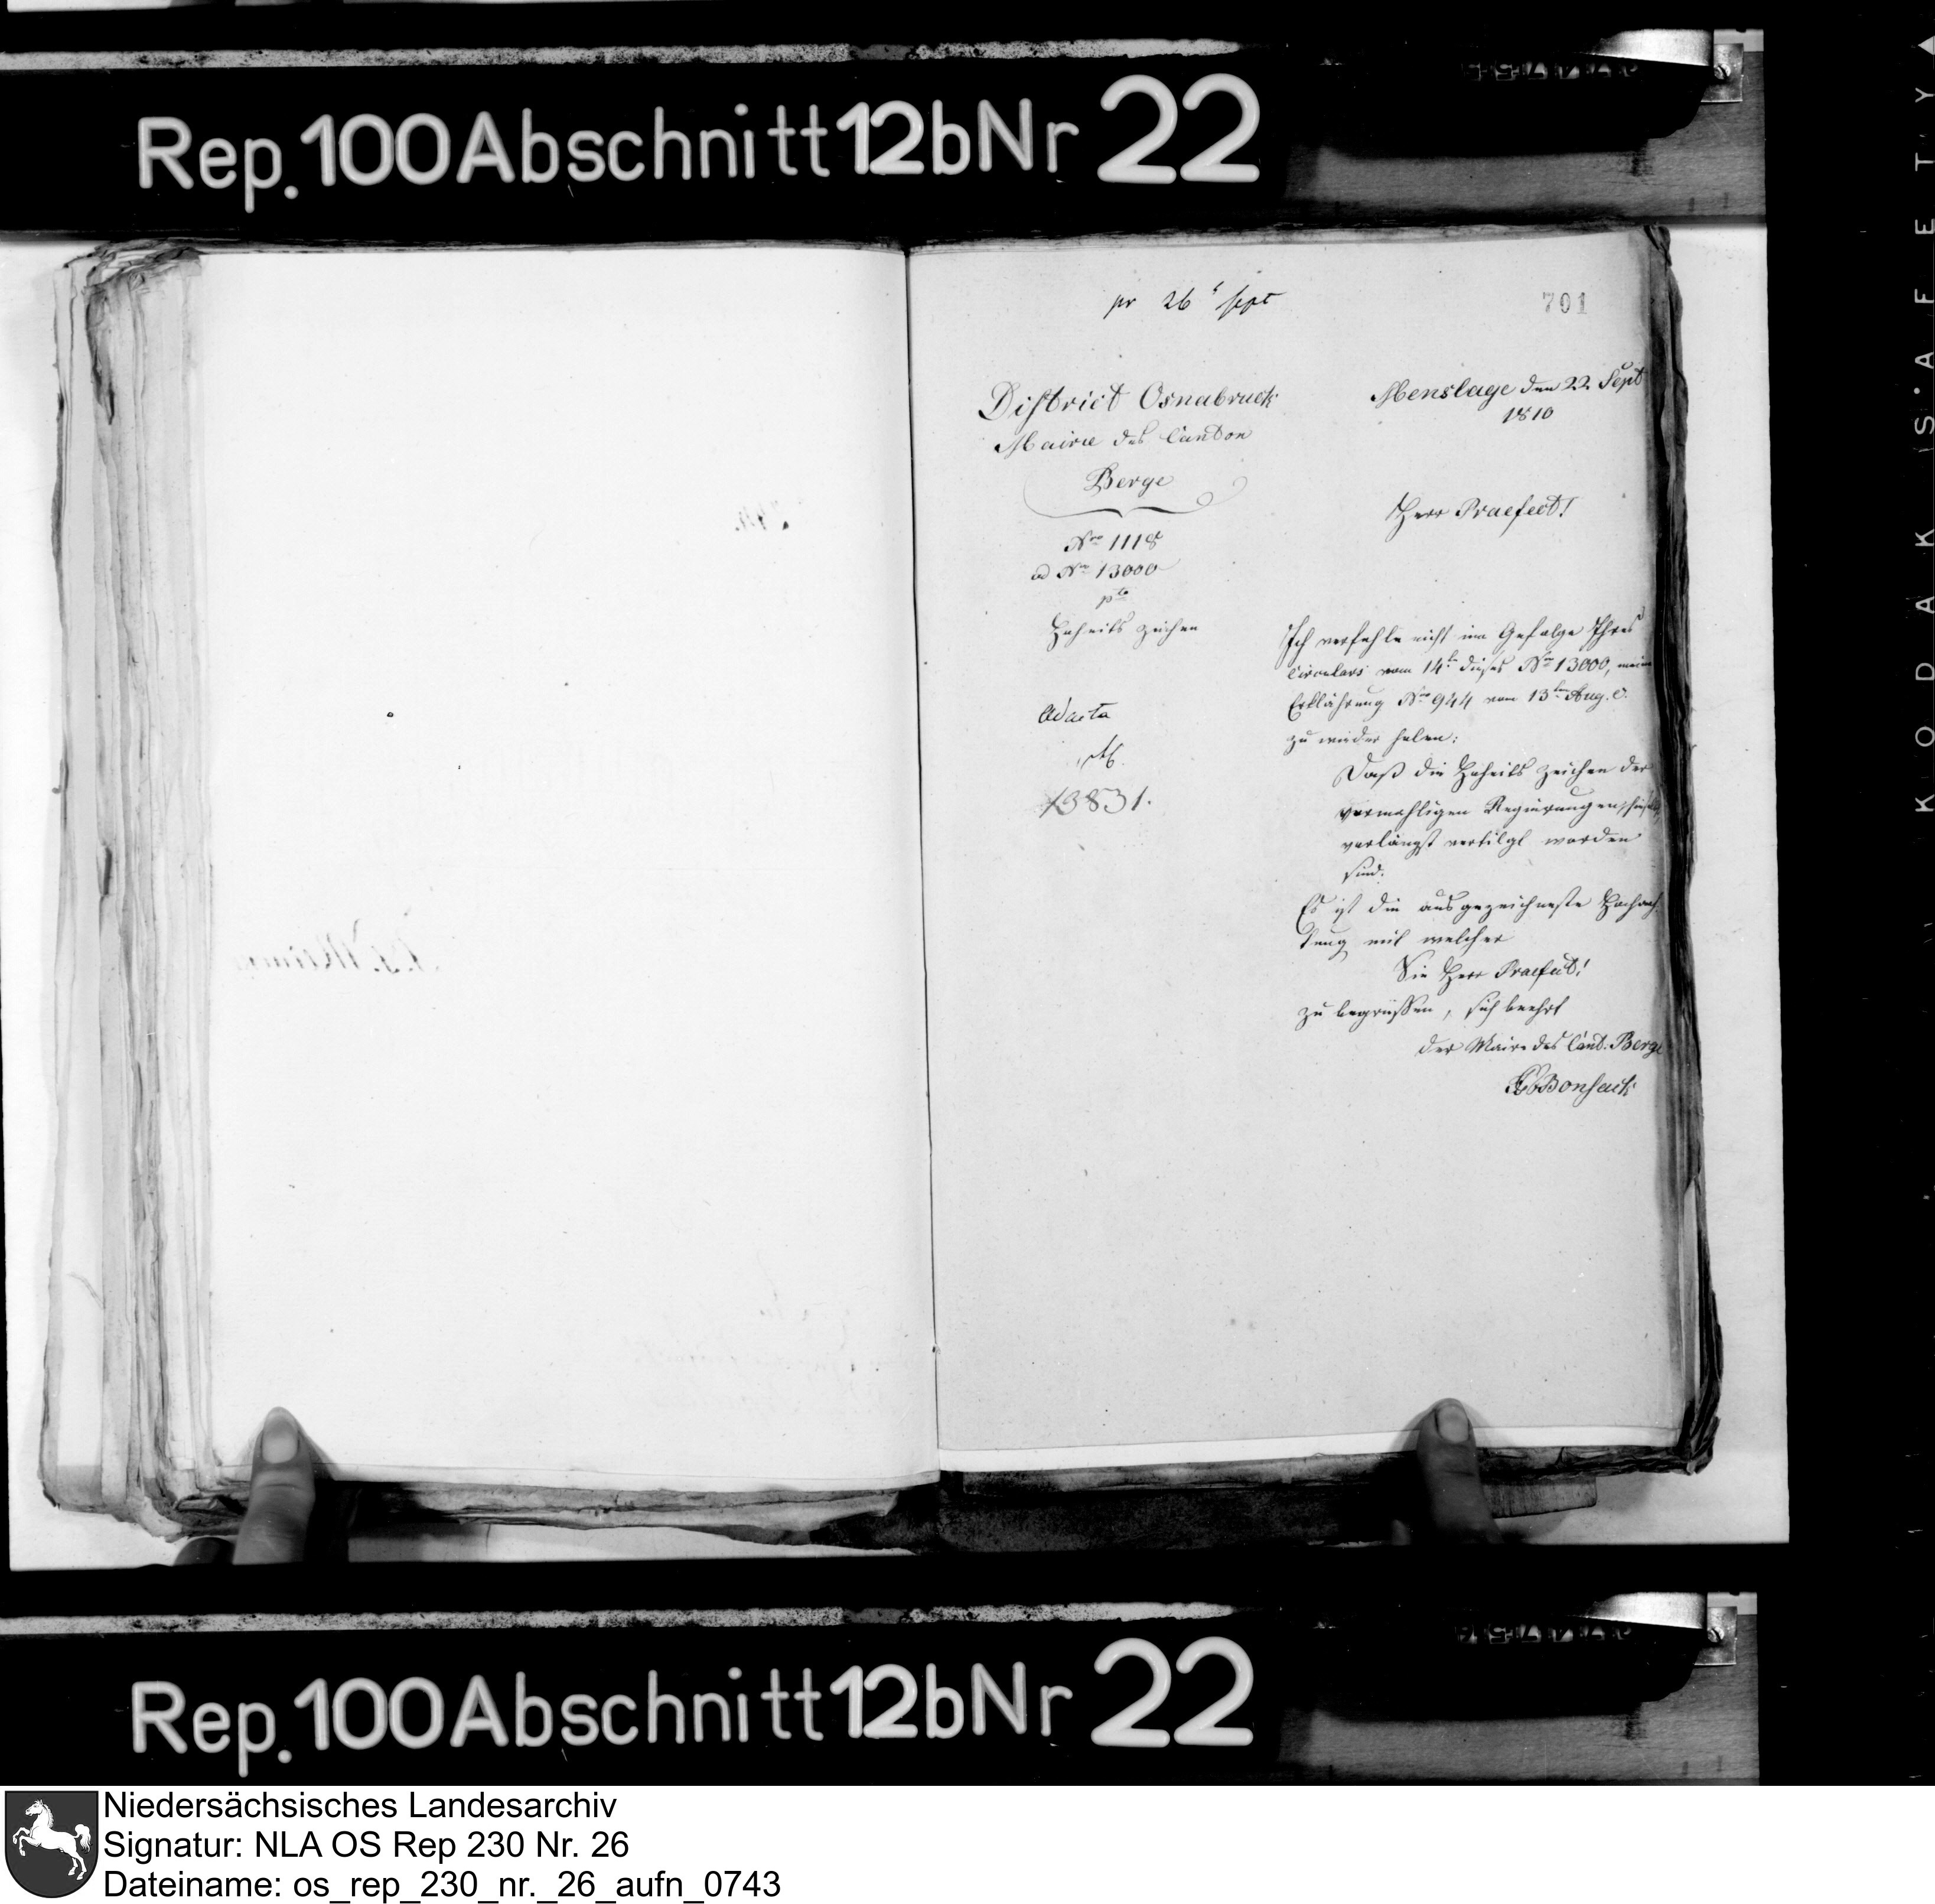 Rep. 100 Abschnitt 12b Nr 22
pr 26 t Sept
701
District Osnabruck
Mairie des Canton
Berge
Nro 1118
ad Nro 13000
pto
Hoheits zeichen
Ad acta
13831.
Menslage den 22 Sept
1810
Herr Praefect!
Ich verfehle nicht im Gefolge Ihres
Circulars vom 14t. dieses Nro 13000, meine
Erklährung Nro 944 vom 13ten Aug. c.
zu wieder holen:
Daß die Hoheits zeichen der
vormahligen Regierungen
vorlängst vertilgt worden
sind.
Es ist die ausgezeichneste Hochach,
tung mit welcher
Sie Herr Praefect!
zu begrüssen, sich beehrt
der Maire des Cant: Berge
Bonsack
KODAK SAFETY
Rep. 100 Abschnitt 12b Nr 22
Niedersächsisches Landesarchiv
Signatur: NLA OS Rep 230 Nr. 26
Dateiname: os_rep_230_nr._26_aufn_0743